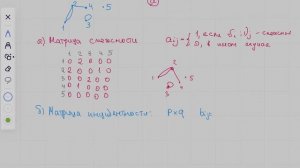 4 5
1
а) Матрица смежности
aij = { 1, если
0, в ином случае
1 2 3 4 5
1 0 2 0 0 0
2 2 0 0 1 0
3 0 0 0 0
4 0 1 0 0 0
5 0 0 0 0
2
1 5
б) Матрица инцидентности: p×q bij